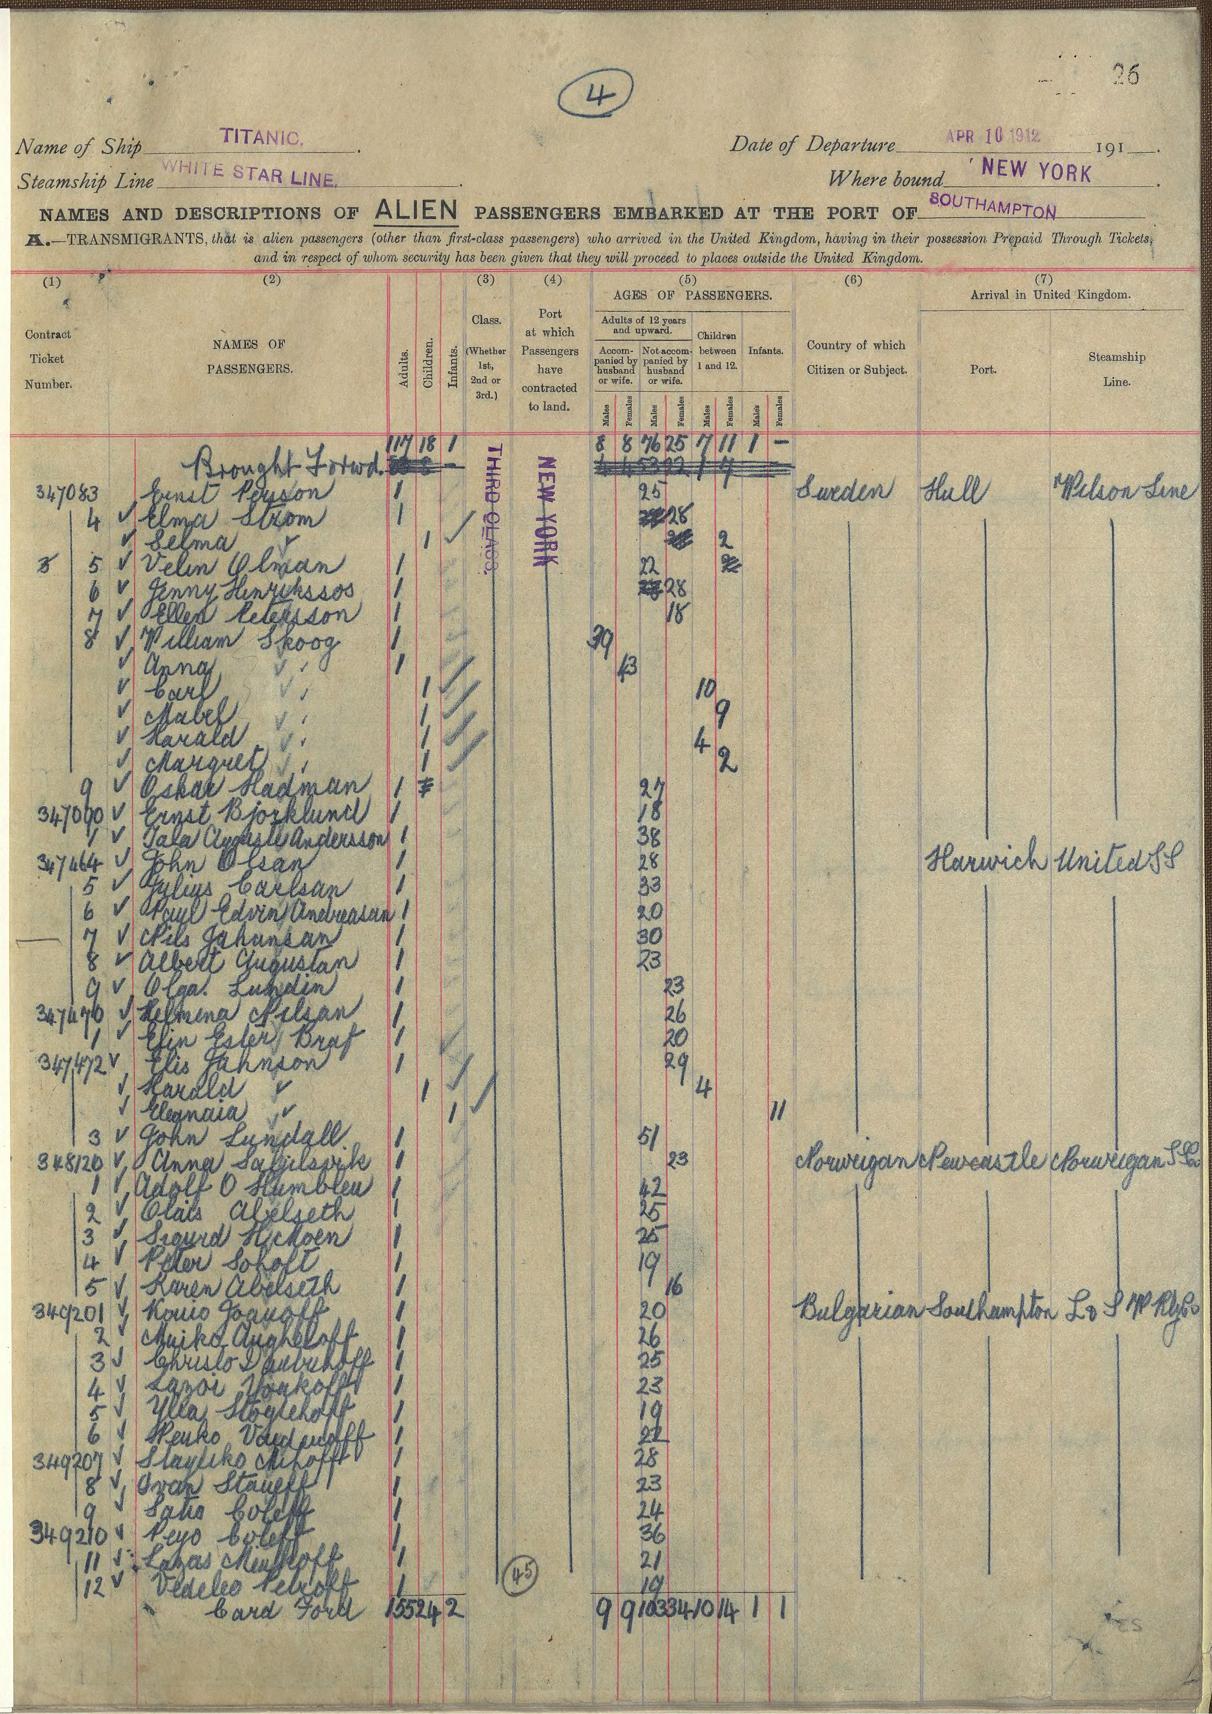 26
4
Name of Ship TITANIC.
Date of Departure APR 10 1912 191
Steamship Line WHITE STAR LINE.
Where bound NEW YORK
NAMES AND DESCRIPTIONS OF ALIEN PASSENGERS EMBARKED AT THE PORT OF SOUTHAMPTON
A.—TRANSMIGRANTS, that is alien passengers (other than first-class passengers) who arrived in the United Kingdom, having in their possession Prepaid Through Tickets,
and in respect of whom security has been given that they will proceed to places outside the United Kingdom.
(1) (2) (3) (4) (5) (6) (7)
Contract Ticket Number.
NAMES OF PASSENGERS.
Adults. Children. Infants.
Class. (Whether 1st, 2nd or 3rd.)
Port at which Passengers have contracted to land.
AGES OF PASSENGERS.
Adults of 12 years and upward.
Accompanied by husband or wife.
Not accompanied by husband or wife.
Children between 1 and 12.
Infants.
Males Females Males Females Males Females Males Females
Country of which Citizen or Subject.
Arrival in United Kingdom.
Port.
Steamship Line.
THIRD CLASS.
NEW YORK
117 18 1 8 8 76 25 7 11 1 -
Brought Forwd.
347083 Ernst Person 1 25 Sweden Hull Wilson Line
4 Elma Strom 1 28
Selma 1 2
5 Velin Olman 1 22
6 Jenny Henrikssos 1 28
7 Ellen Petersson 1 18
8 William Skoog 1 39
Anna 1 43
Carl 1 10
Mabel 1 9
Harald 1 4
Margret 1 2
9 Oskar Hadman 1 27
347090 Ernst Bjorklund 1 18
1 Tala Auguste Andersson 1 38
347464 John Olsan 1 28 Harwich United SS
5 Julius Carlsan 1 33
6 Paul Edvin Andreasan 1 20
7 Nils Jahansan 1 30
8 Albert Augustan 1 23
9 Olga. Lundin 1 23
347470 Helmena Nilsan 1 26
1 Elin Ester Braf 1 20
347472 Elis Jahnson 1 29
Harald 1 4
1 11
3 John Lundall 1 51
348120 Anna 1 23 Norweigan Newcastle Norweigan S Co
1 Adolf O Humblen 1 42
2 Olais Abelseth 1 25
3 Sigurd H Moen 1 25
4 Peter Soholt 1 19
5 Karen Abelseth 1 16
349201 1 20 Bulgarian Southampton L & S W Rly Co
2 1 26
3 Christo 1 25
4 1 23
5 Ylia 1 19
6 Penko 1 22
349207 1 28
8 Ivan Staneff 1 23
9 Satio Coleff 1 24
349210 Peyo Coleff 1 36
11 Lazas Minkoff 1 21
12 Petroff 1 19
45
Card Ford 155 24 2 9 9 103 34 10 14 1 1